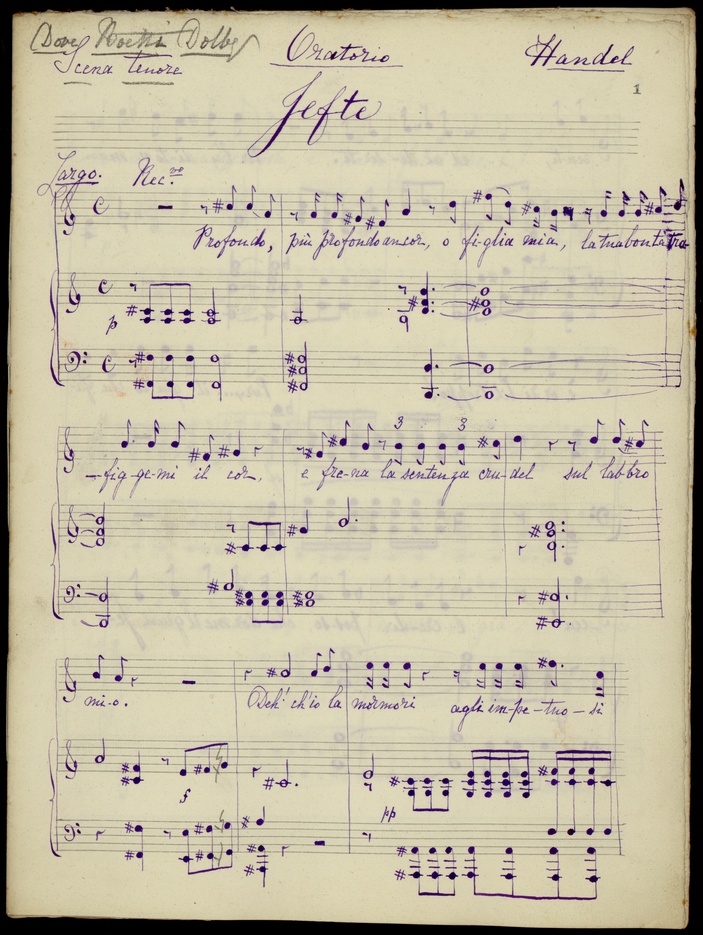 Dove Dolby
Oratorio
Handel
Scena Tenore
1
Jefte
Largo. Rec.vo
Profondo, più profondo ancor, o figlia mia, la tua bontà tra-
p
-fig-ge-mi il cor, e fre-na la sentenza cru-del sul labbro
3 3
mi-o. Deh' ch'io la mormori agli im-pe-tuo-si
f
pp